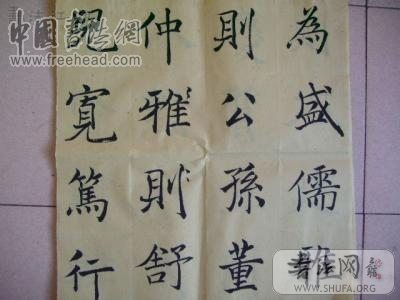 為盛儒雅
則公孫董
仲雅則舒
寬篤行
中國書法網
www.freehead.com
書法网
WWW.SHUFA.ORG